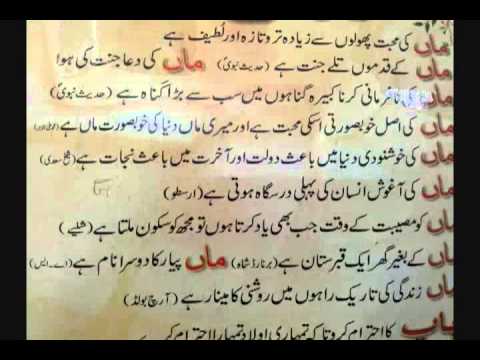 ماں کی محبت پھولوں سے زیادہ تر و تازہ اور لطیف ہے
ماں کے قدموں تلے جنت ہے (حدیث نبویؐ) ماں کی دعا جنت کی ہوا
ماں کی نافرمانی کرنا کبیرہ گناہوں میں سب سے بڑا گناہ ہے (حدیث نبویؐ)
ماں کی اصل خوبصورتی اسکی محبت ہے اور میری ماں دنیا کی خوبصورت ماں ہے
ماں کی خوشنودی دنیا میں باعث دولت اور آخرت میں باعث نجات ہے (شیخ سعدی)
ماں کی آغوش انسان کی پہلی درسگاہ ہوتی ہے (ارسطو)
ماں کو مصیبت کے وقت جب بھی یاد کرتا ہوں تو مجھ کو سکون ملتا ہے (شیلے)
ماں کے بغیر گھر ایک قبرستان ہے (برنارڈشاہ) ماں پیار کا دوسرا نام ہے (اے۔ایس)
ماں زندگی کی تاریک راہوں میں روشنی کا مینار ہے (آرچ بولڈ)
باپ کا احترام کرو تاکہ تمہاری اولاد تمہارا احترام کرے